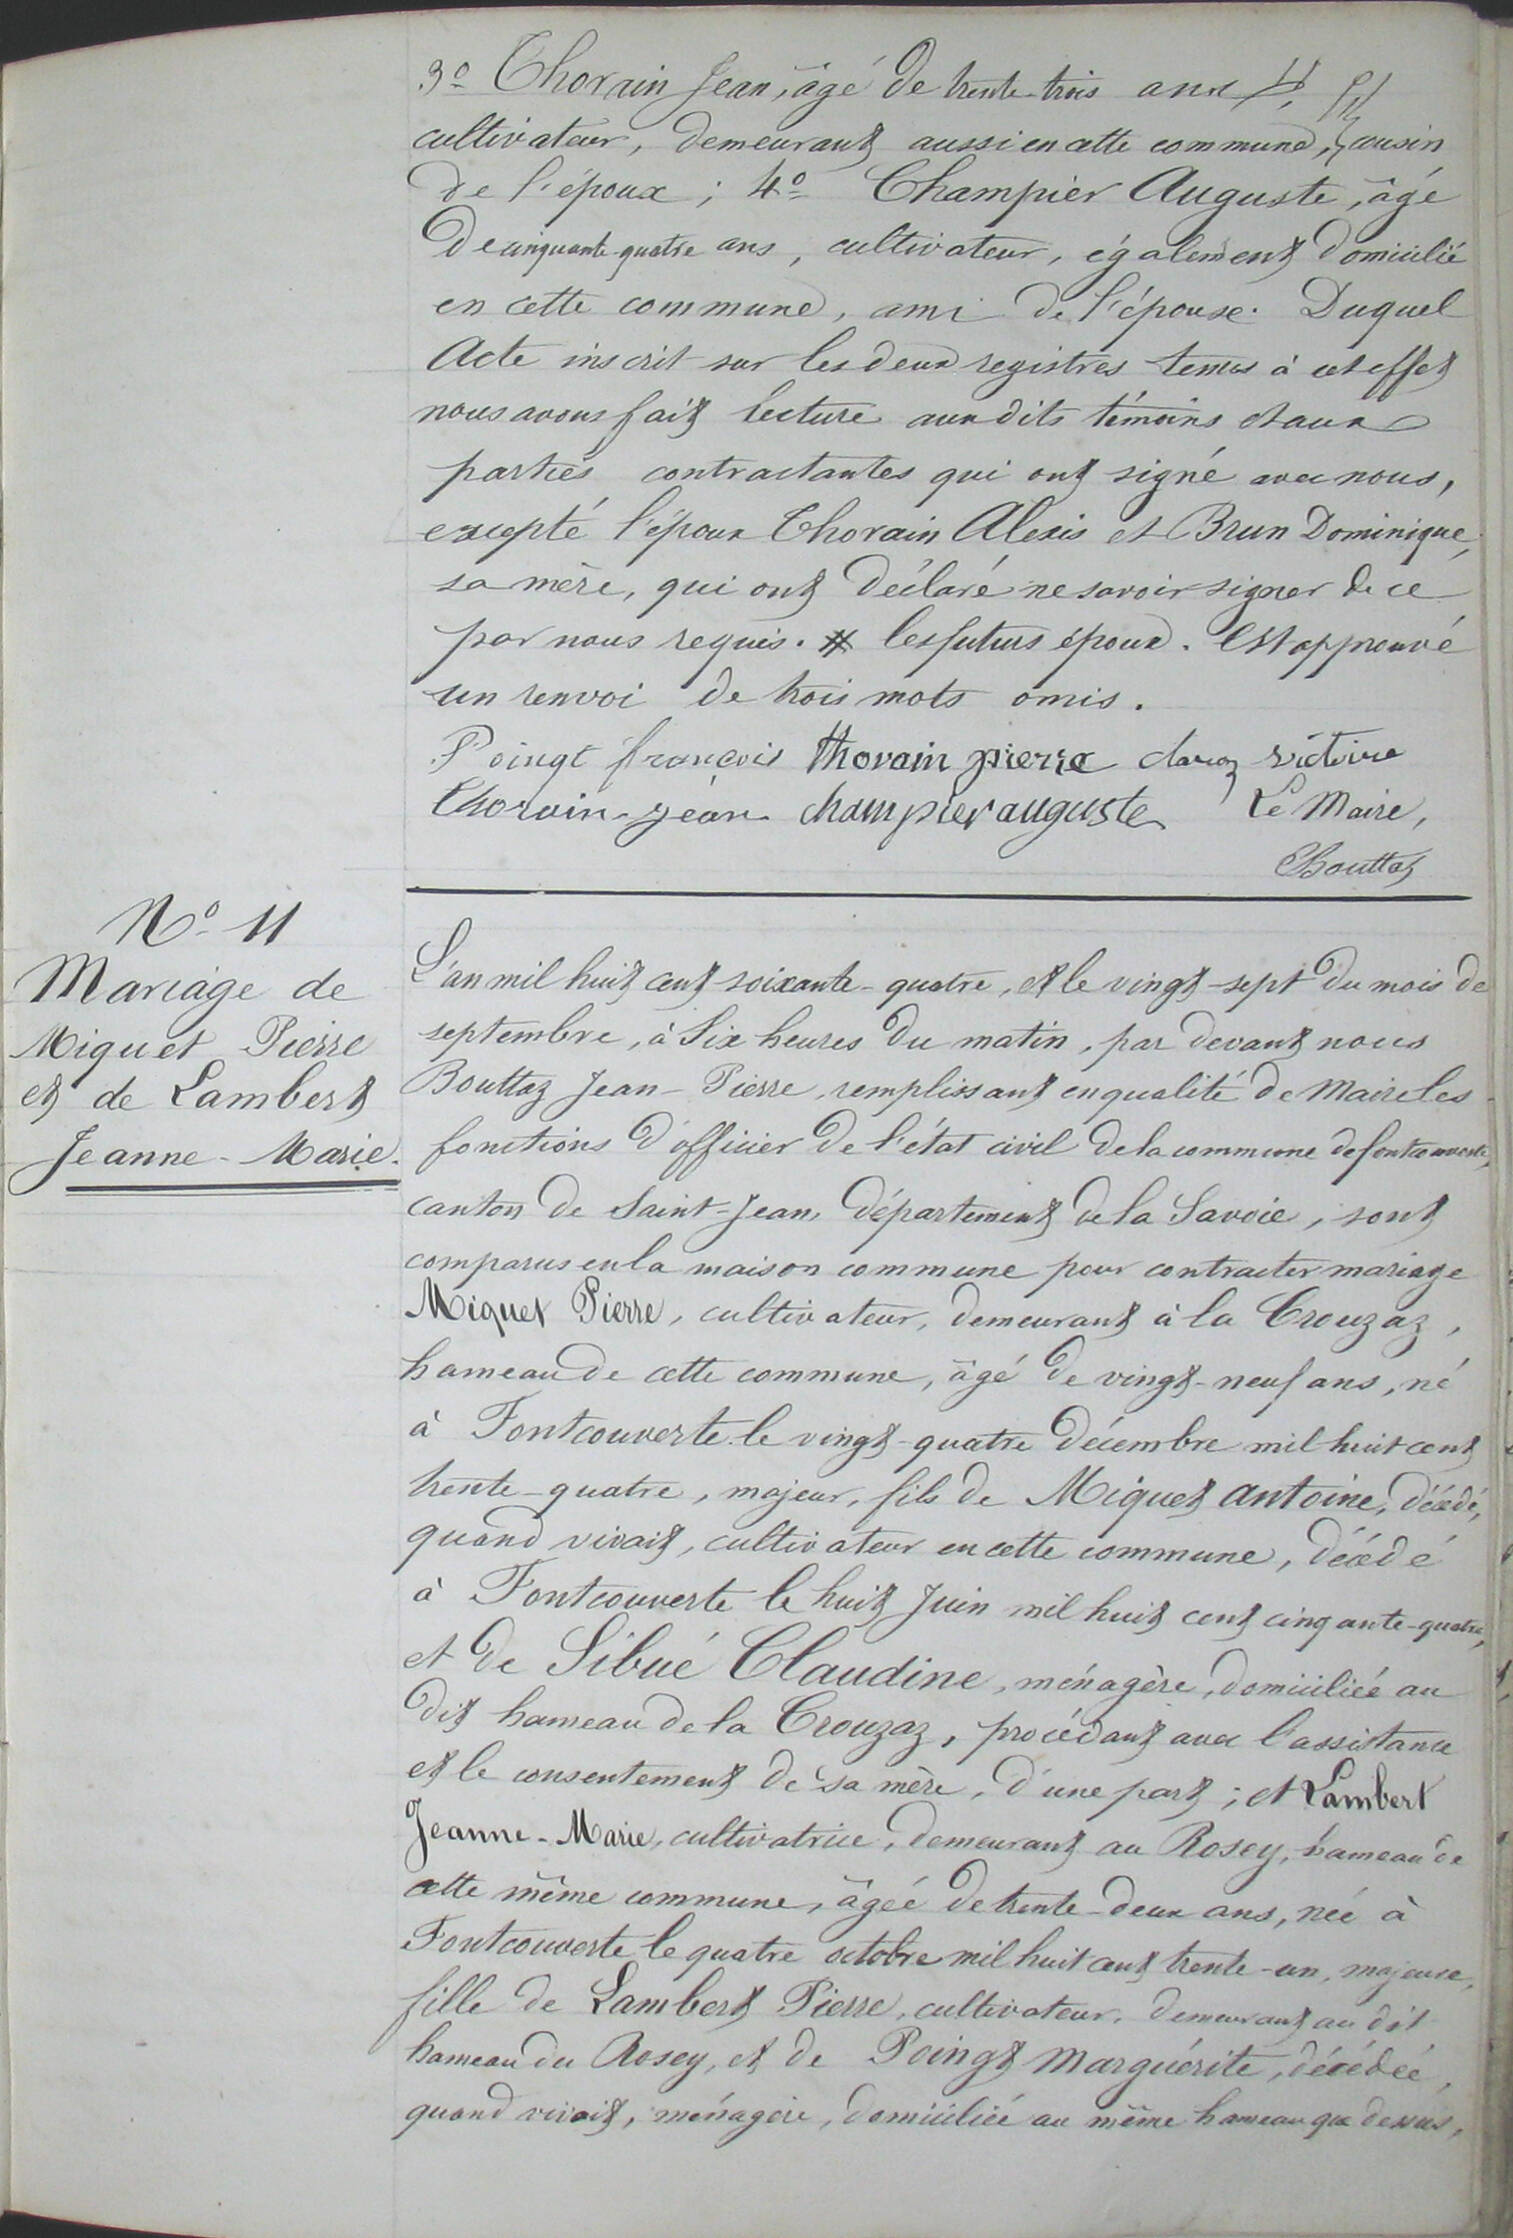 3º Thorain Jean, âgé de trente-trois ans,
cultivateur, demeurant aussi en cette commune, cousin
de l'époux ; 4º Champier Auguste, âgé
de cinquante-quatre ans, cultivateur, également domicilié
en cette commune, ami de l'épouse. Duquel
Acte inscrit sur les deux registres tenus à cet effet
nous avons fait lecture aux dits témoins et aux
parties contractantes qui ont signé avec nous,
excepté l'époux Thorain Alexis et Brun Dominique,
sa mère, qui ont déclaré ne savoir signer de ce
par nous requis. # les futurs époux. Est approuvé
un renvoi de trois mots omis.
Poingt françois thorain pierre victoire
Thorain jean champier auguste Le Maire,
Bouttaz
Nº 11
Mariage de
Miquet Pierre
et de Lambert
Jeanne-Marie.
L'an mil huit cent soixante-quatre, et le vingt-sept du mois de
septembre, à six heures du matin, par devant nous
Bouttaz Jean-Pierre, remplissant en qualité de Maire les
fonctions d'officier de l'état civil de la commune de fontcouverte,
canton de Saint-Jean, département de la Savoie, sont
comparus en la maison commune pour contracter mariage
Miquet Pierre, cultivateur, demeurant à la Crouzaz,
hameau de cette commune, âgé de vingt-neuf ans, né
à Fontcouverte le vingt-quatre décembre mil huit cent
trente-quatre, majeur, fils de Miquet Antoine, décédé,
quand vivait, cultivateur en cette commune, décédé
à Fontcouverte le huit Juin mil huit cent cinqante-quatre,
et de Sibué Claudine, ménagère, domiciliée au
dit hameau de la Crouzaz, procédant avec l'assistance
et le consentement de sa mère, d'une part ; et Lambert
Jeanne-Marie, cultivatrice, demeurant au Rosey, hameau de
cette même commune, âgée de trente-deux ans, née à
Fontcouverte le quatre octobre mil huit cent trente-un, majeure,
fille de Lambert Pierre, cultivateur, demeurant au dit
hameau du Rosey, et de Poingt Marguérite, décédée,
quand vivait, ménagère, domiciliée au même hameau que dessus,